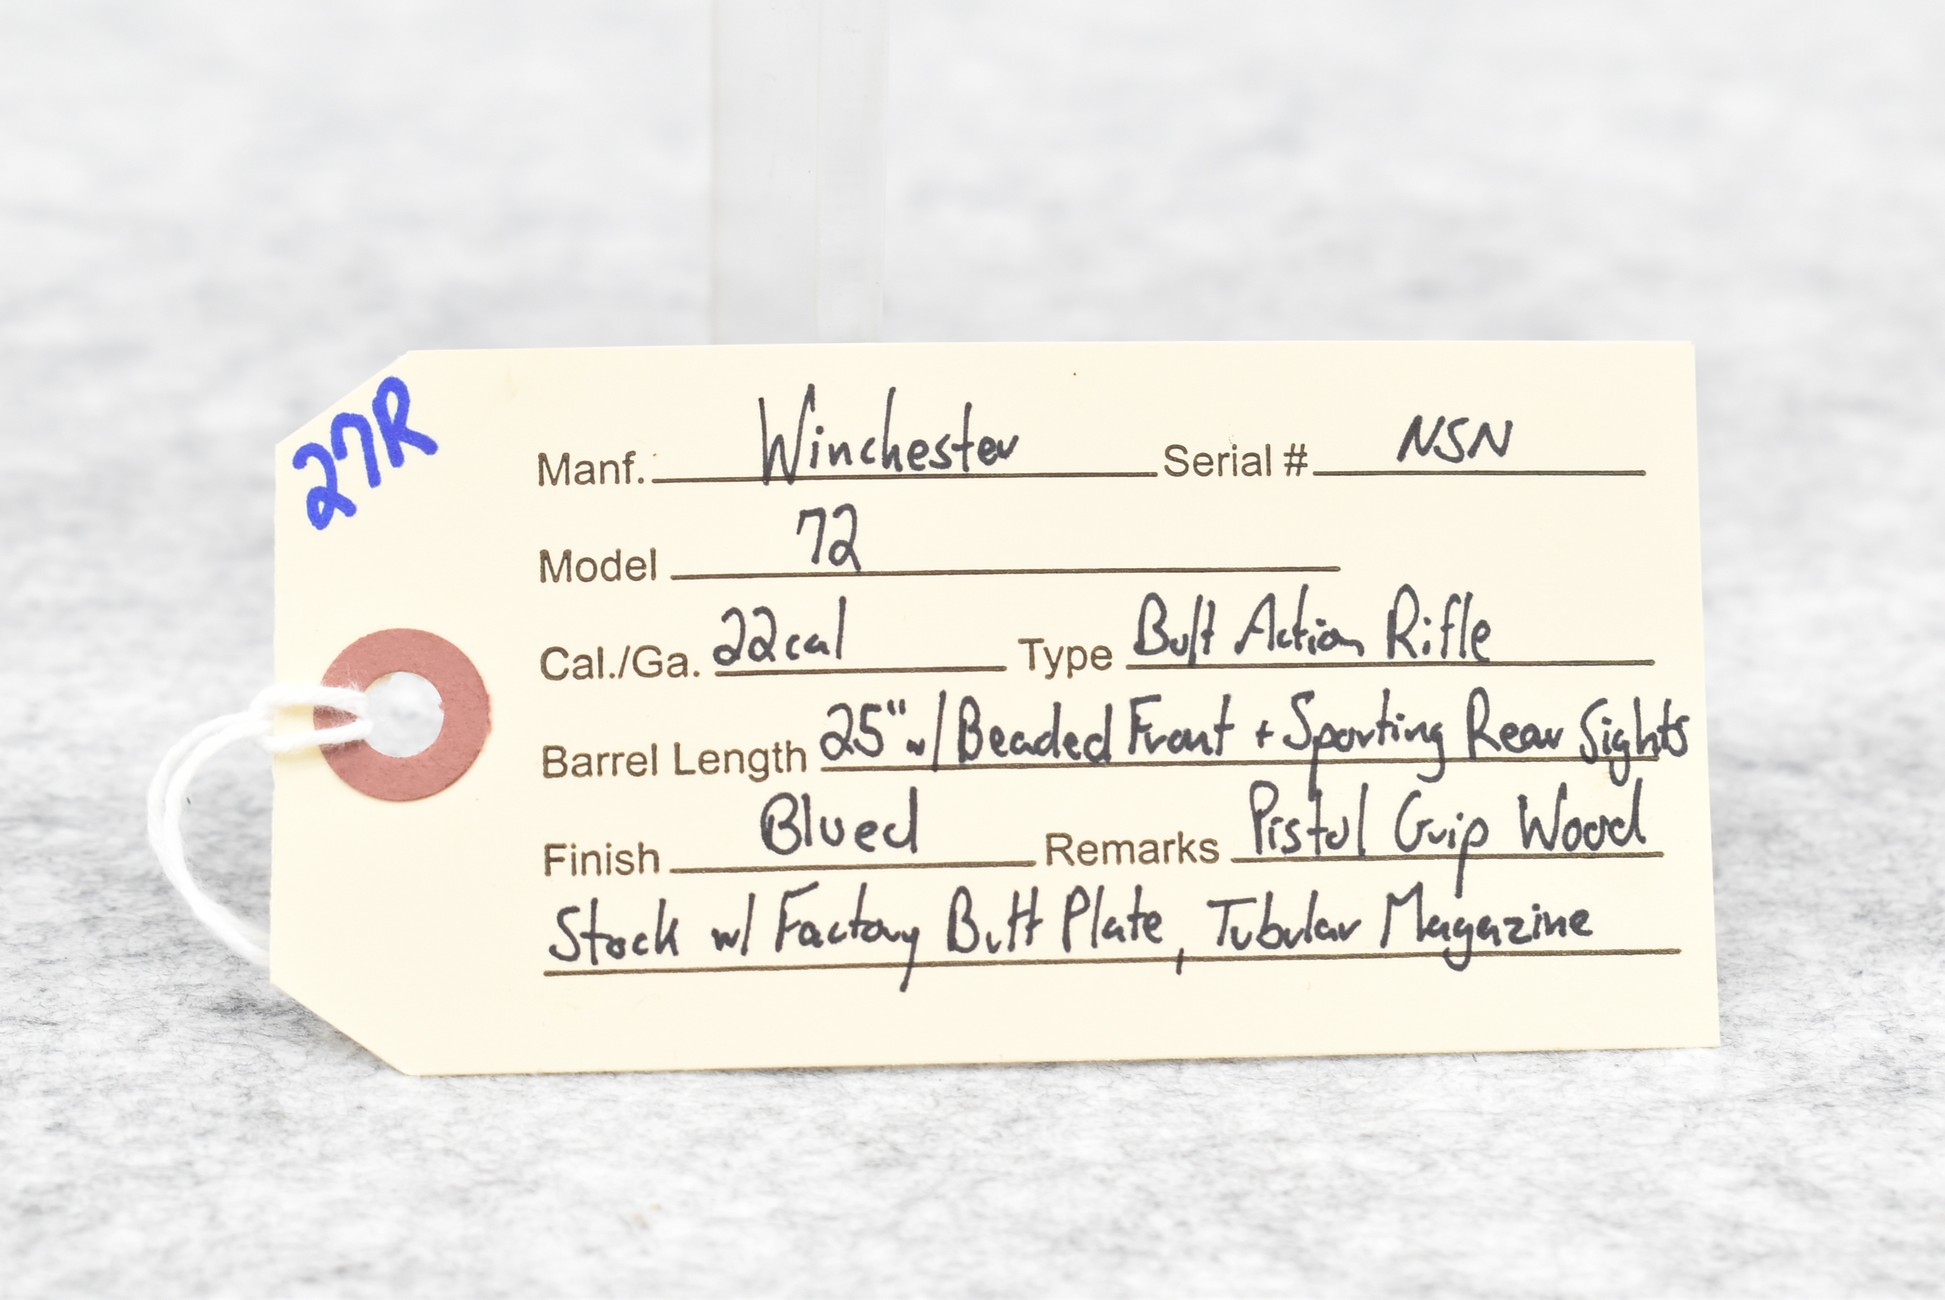 27R
Manf. Winchester Serial # NSN
Model 72
Cal./Ga. 22cal Type Bolt Action Rifle
Barrel Length 25" w/ Beaded Front + Sporting Rear Sights
Finish Blued Remarks Pistol Grip Wood
Stock w/ Factory Butt Plate, Tubular Magazine